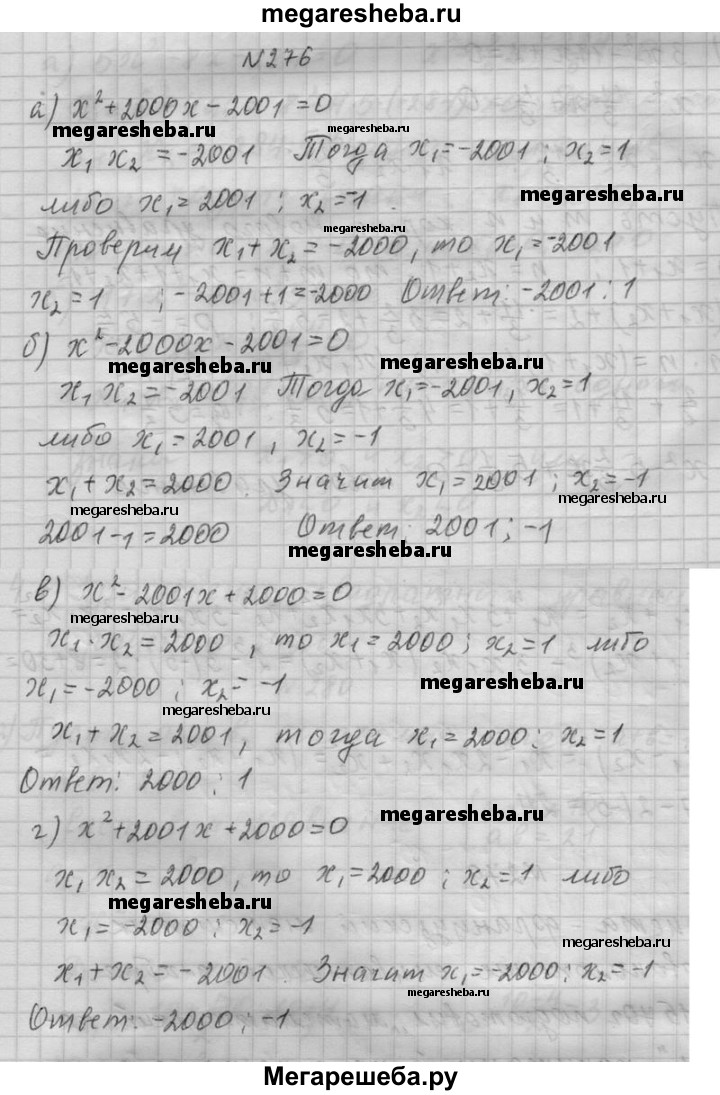 megaresheba.ru
N276
а) x²+2000x-2001=0
megaresheba.ru megaresheba.ru
x₁ x₂ =-2001 Тогда x₁=-2001; x₂=1
megaresheba.ru
либо x₁=2001; x₂=-1.
megaresheba.ru
Проверим x₁+x₂=-2000, то x₁=-2001
x₂=1 ; -2001+1=-2000 Ответ: -2001; 1
б) x²-2000x-2001=0
megaresheba.ru megaresheba.ru
x₁ x₂=-2001 Тогда x₁=-2001, x₂=1
либо x₁=2001, x₂=-1
x₁+x₂=2000. Значит x₁=2001; x₂=-1
megaresheba.ru megaresheba.ru
2001-1=2000 Ответ: 2001; -1
megaresheba.ru
в) x²-2001x+2000=0
megaresheba.ru
x₁·x₂=2000, то x₁=2000; x₂=1 либо
x₁=-2000; x₂=-1
megaresheba.ru
megaresheba.ru
x₁+x₂=2001, тогда x₁=2000; x₂=1
Ответ: 2000; 1
megaresheba.ru
г) x²+2001x+2000=0
x₁ x₂=2000, то x₁=2000; x₂=1 либо
megaresheba.ru
x₁=-2000; x₂=-1
megaresheba.ru
x₁+x₂=-2001. Значит x₁=-2000; x₂=-1
megaresheba.ru
Ответ: -2000; -1
Мегарешеба.ру